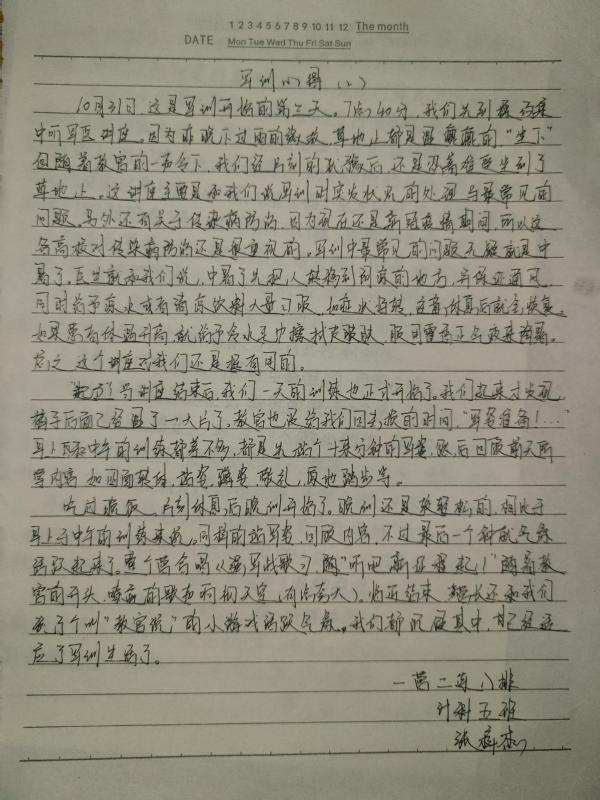 1 2 3 4 5 6 7 8 9 10 11 12 The month
DATE Mon Tue Wed Thu Fri Sat Sun
军训心得(二)
10月31日 这是军训开始的第二天。7点40分,我们先到操场集
中听军医讲座。因为昨晚下过雨的缘故,草地上都是湿漉漉的,“坐下”
但随着教官的一声令下,我们经片刻的犹豫后,还是忍着难受坐到了
草地上。这讲座主要是和我们说军训时突发状况的处理与最常见的
问题。另外还有关于传染病防治,因为现在还是新冠疫情期间,所以这
各高校对传染病防治还是很重视的。军训中最常见的问题无疑就是中
暑了。医生就和我们说,中暑了先把人转移到阴凉的地方,并保证通风,
同时给予凉水或有清凉饮料大量口服,如症状好转,适当休息后就会恢复。
如果患有体温升高就给予冷水毛巾擦拭皮肤,服用藿香正气液来消暑。
总之 这个讲座对我们还是挺有用的。
讲座结束后,我们一天的训练也正式开始了。我们起来才发现
裤子后面已经湿了一大片了,教官也没给我们回去换的时间,“军姿准备!…”
早上和中午的训练都差不多,都是先站个十来分钟的军姿,然后回顾前天所
学内容 如四面集体,站姿,蹲姿,敬礼,原地踏步等。
吃过晚饭,片刻休息后晚训开始了。晚训还是较轻松的,相比于
早上于中午的训练来说。同样的站军姿,回顾内容,不过最后一个钟就气氛
活跃起来了。整个营合唱《强军战歌》,随“听吧 新征程起!”随着教
官的开头,嘹亮的歌声响彻天空(有点夸大),临近结束 营长还和我们
玩了个叫“教官说”的小游戏活跃气氛。我们都沉浸其中,自己经适
应了军训生活了。
一营二连八排
计科五班